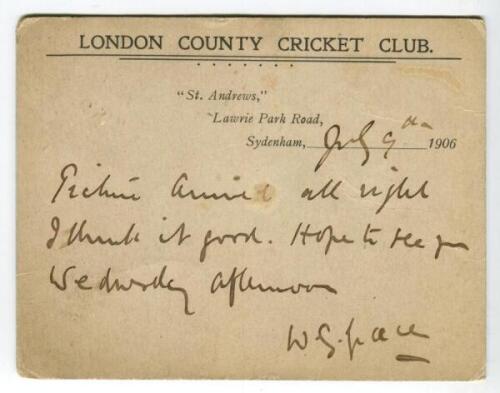 LONDON COUNTY CRICKET CLUB.
"St. Andrews,"
Lawrie Park Road,
Sydenham, July 9th 1906
Picture arrived all right
I think it good. Hope to see you
Wednesday afternoon
W. G. Grace